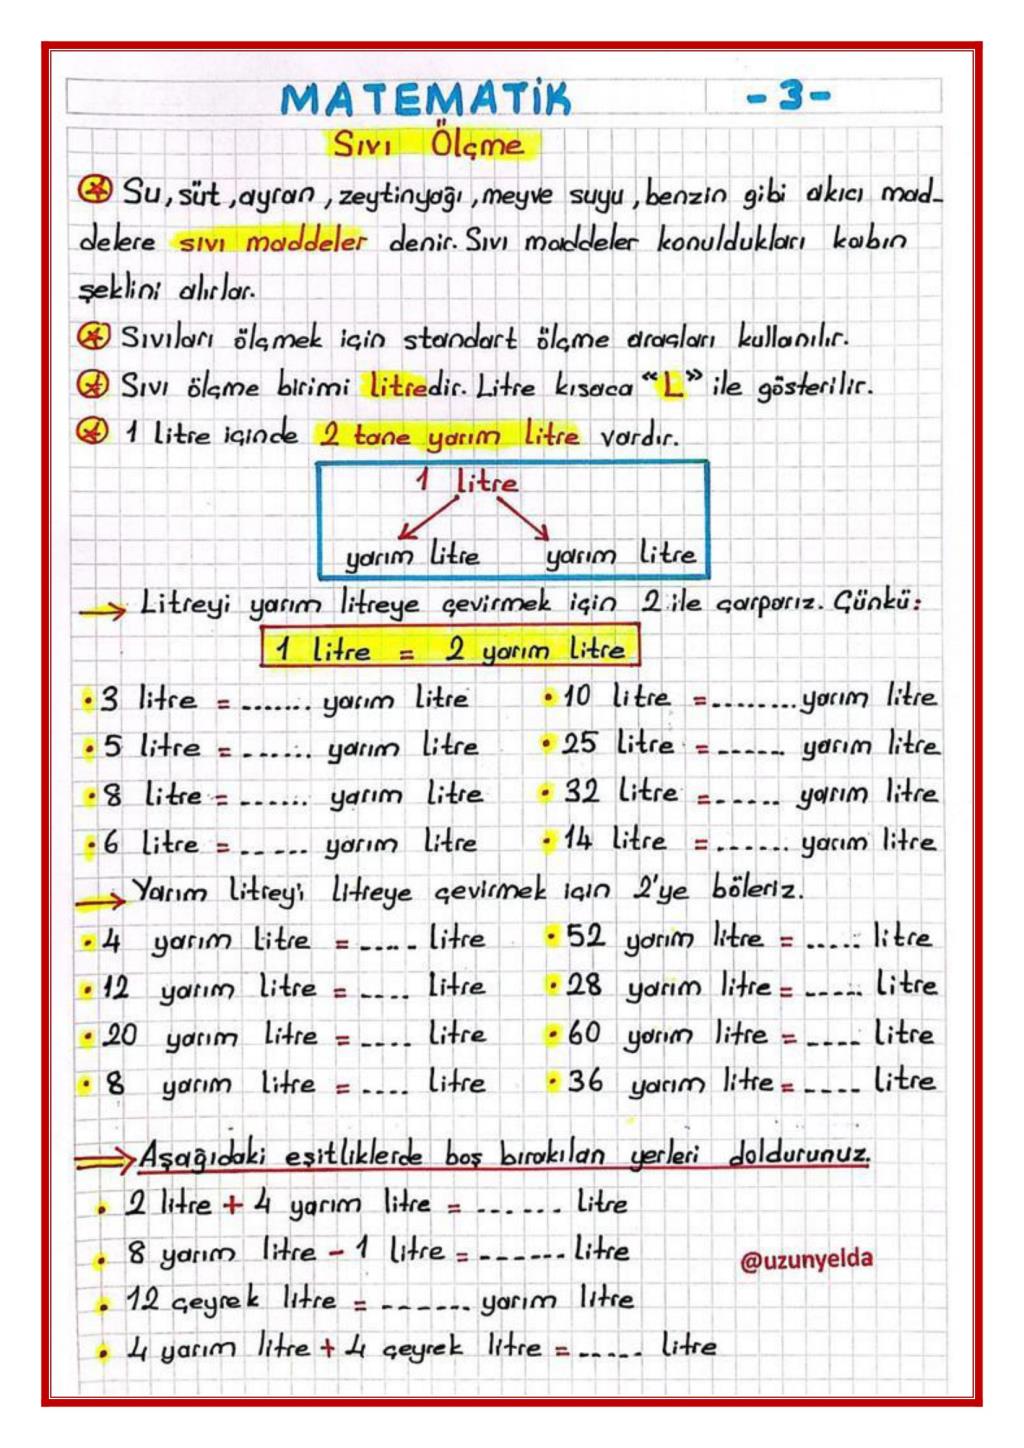 MATEMATİK -3-
Sıvı Ölçme
Su, süt, ayran, zeytinyağı, meyve suyu, benzin gibi akıcı mad-
delere sıvı maddeler denir. Sıvı maddeler konuldukları kabın
şeklini alırlar.
Sıvıları ölçmek için standart ölçme araçları kullanılır.
Sıvı ölçme birimi litredir. Litre kısaca “L” ile gösterilir.
1 litre içinde 2 tane yarım litre vardır.
1 litre
yarım litre yarım litre
Litreyi yarım litreye çevirmek için 2 ile çarparız. Çünkü:
1 litre = 2 yarım litre
• 3 litre = ....... yarım litre • 10 litre = ........ yarım litre
• 5 litre = ...... yarım litre • 25 litre = ...... yarım litre
• 8 litre = ...... yarım litre • 32 litre = ...... yarım litre
• 6 litre = ...... yarım litre • 14 litre = ...... yarım litre
Yarım litreyi litreye çevirmek için 2'ye böleriz.
• 4 yarım litre = ..... litre • 52 yarım litre = ..... litre
• 12 yarım litre = .... litre • 28 yarım litre = ..... litre
• 20 yarım litre = .... litre • 60 yarım litre = .... litre
• 8 yarım litre = .... litre • 36 yarım litre = .... litre
Aşağıdaki eşitliklerde boş bırakılan yerleri doldurunuz.
• 2 litre + 4 yarım litre = ...... litre
• 8 yarım litre - 1 litre = ....... litre
@uzunyelda
• 12 çeyrek litre = ....... yarım litre
• 4 yarım litre + 4 çeyrek litre = ..... litre